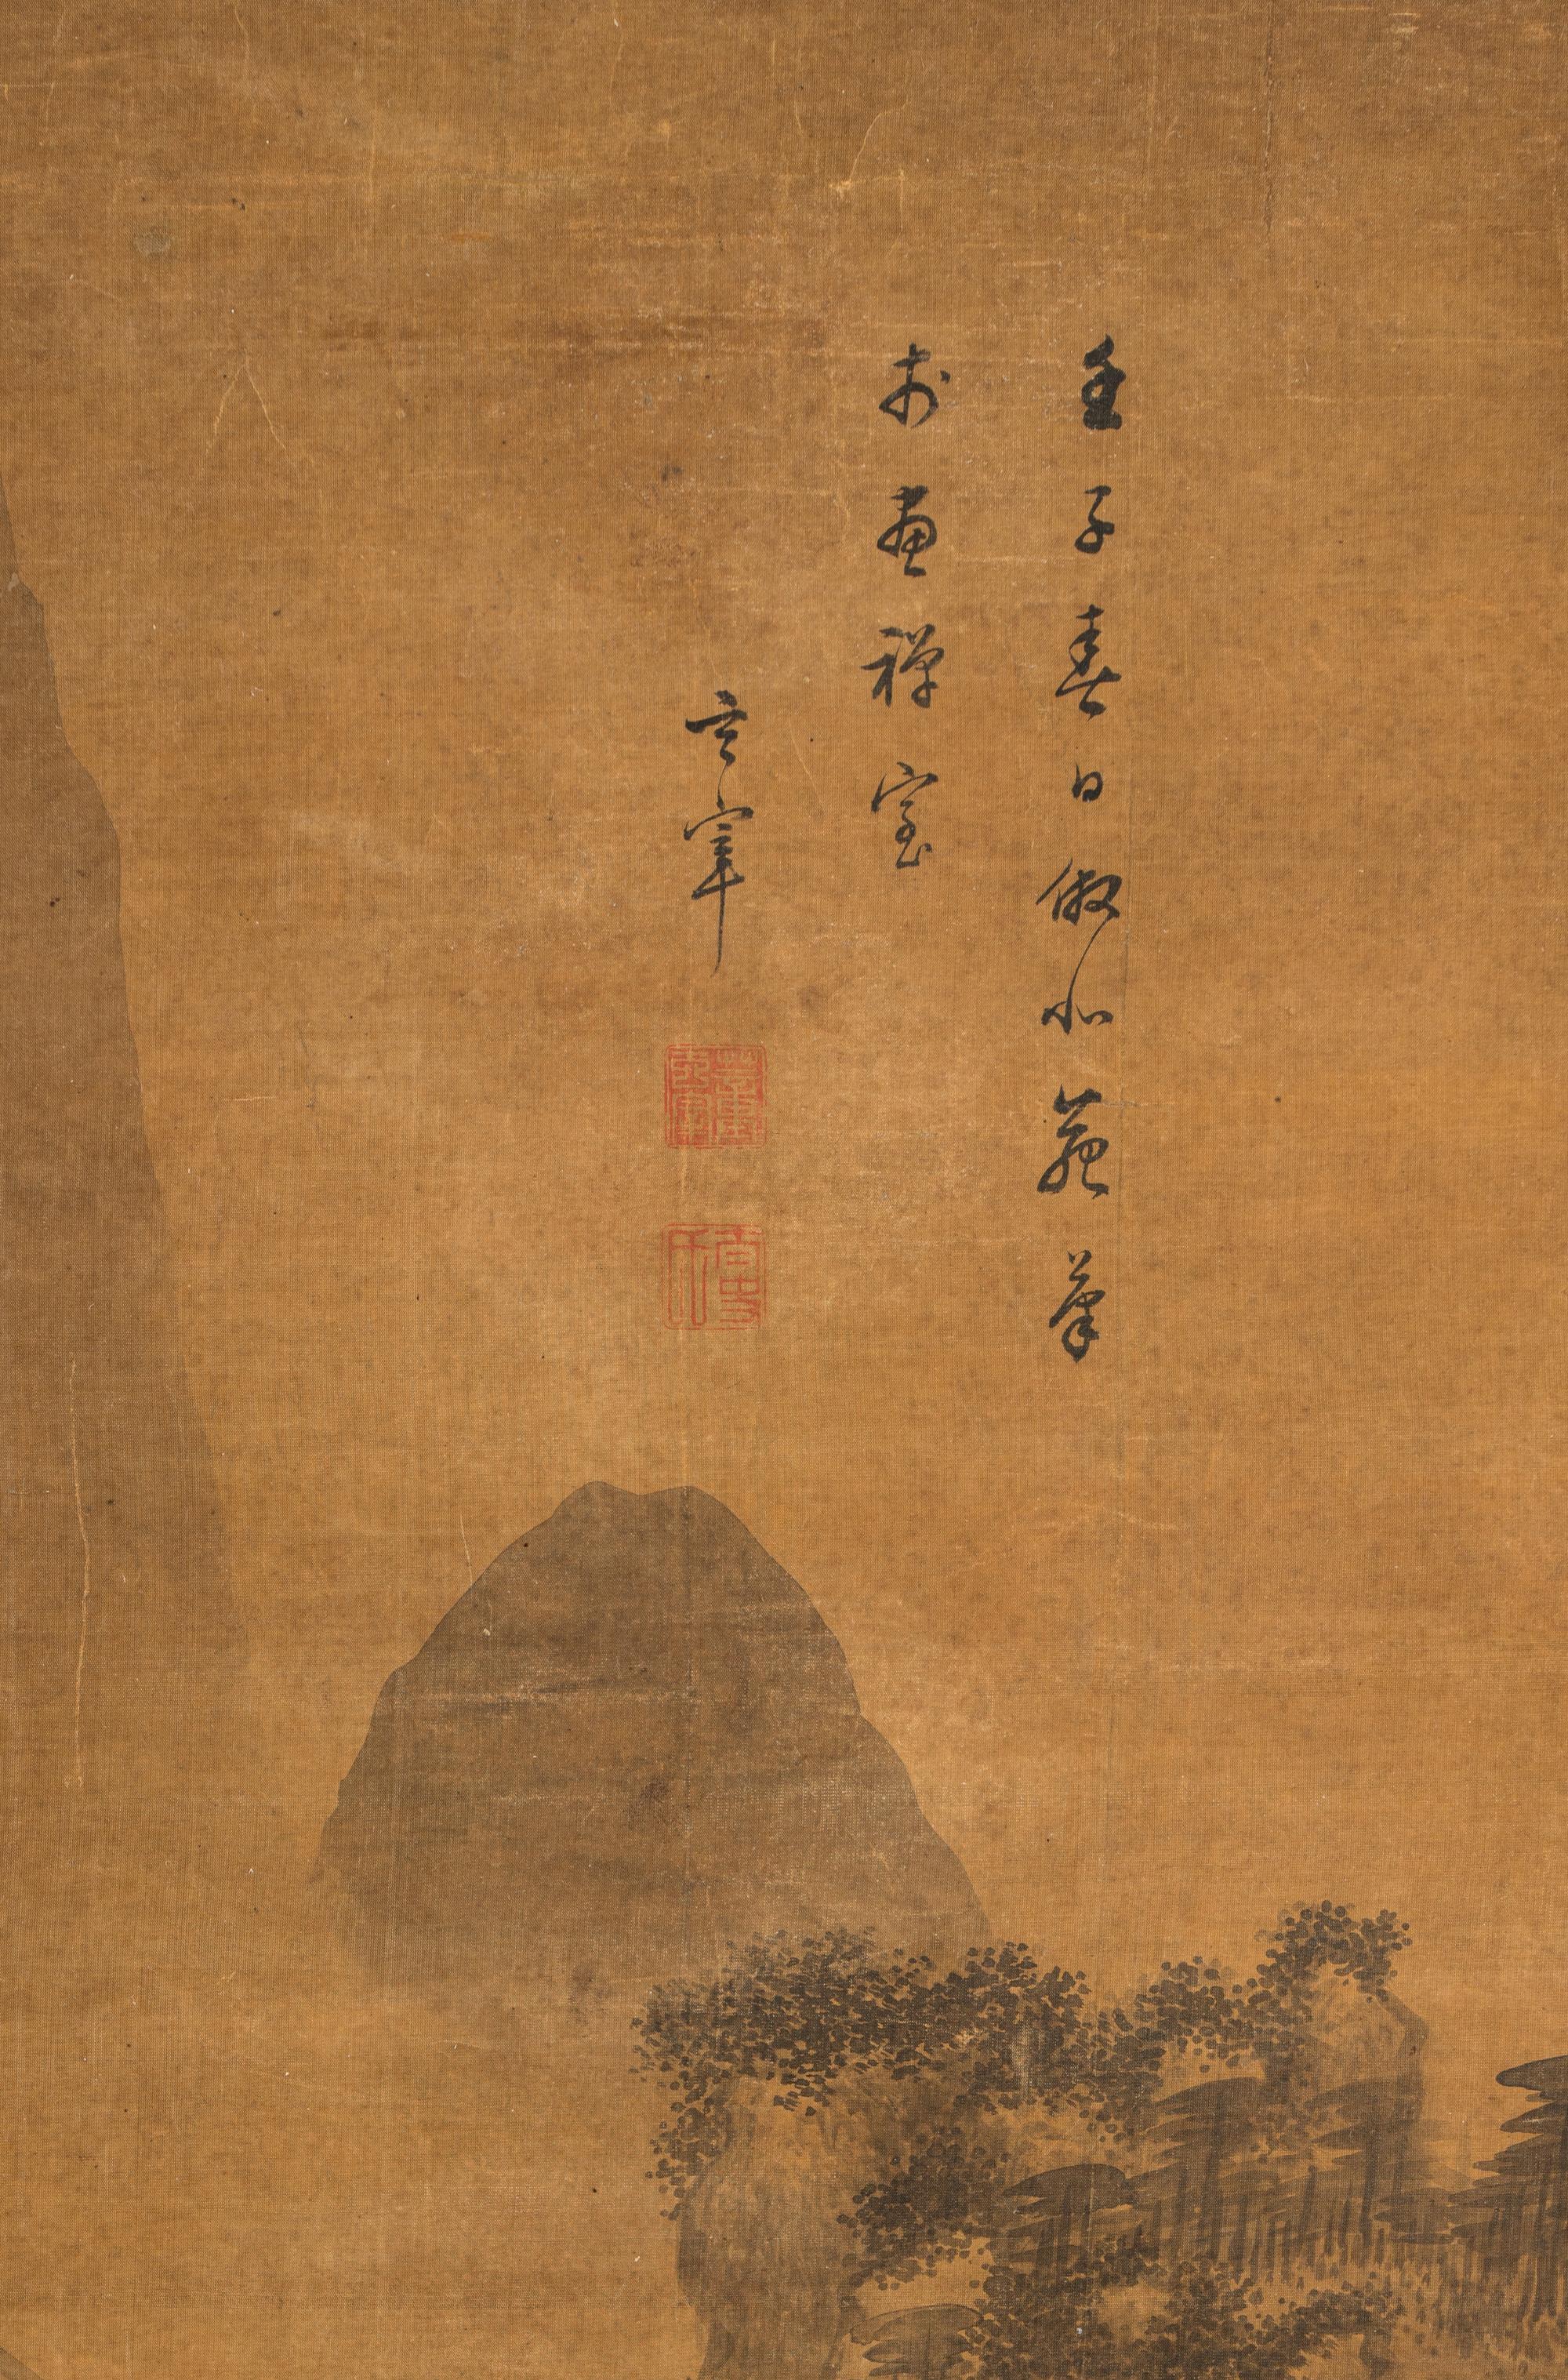 壬子春日倣北苑筆
於畫禪室
玄宰